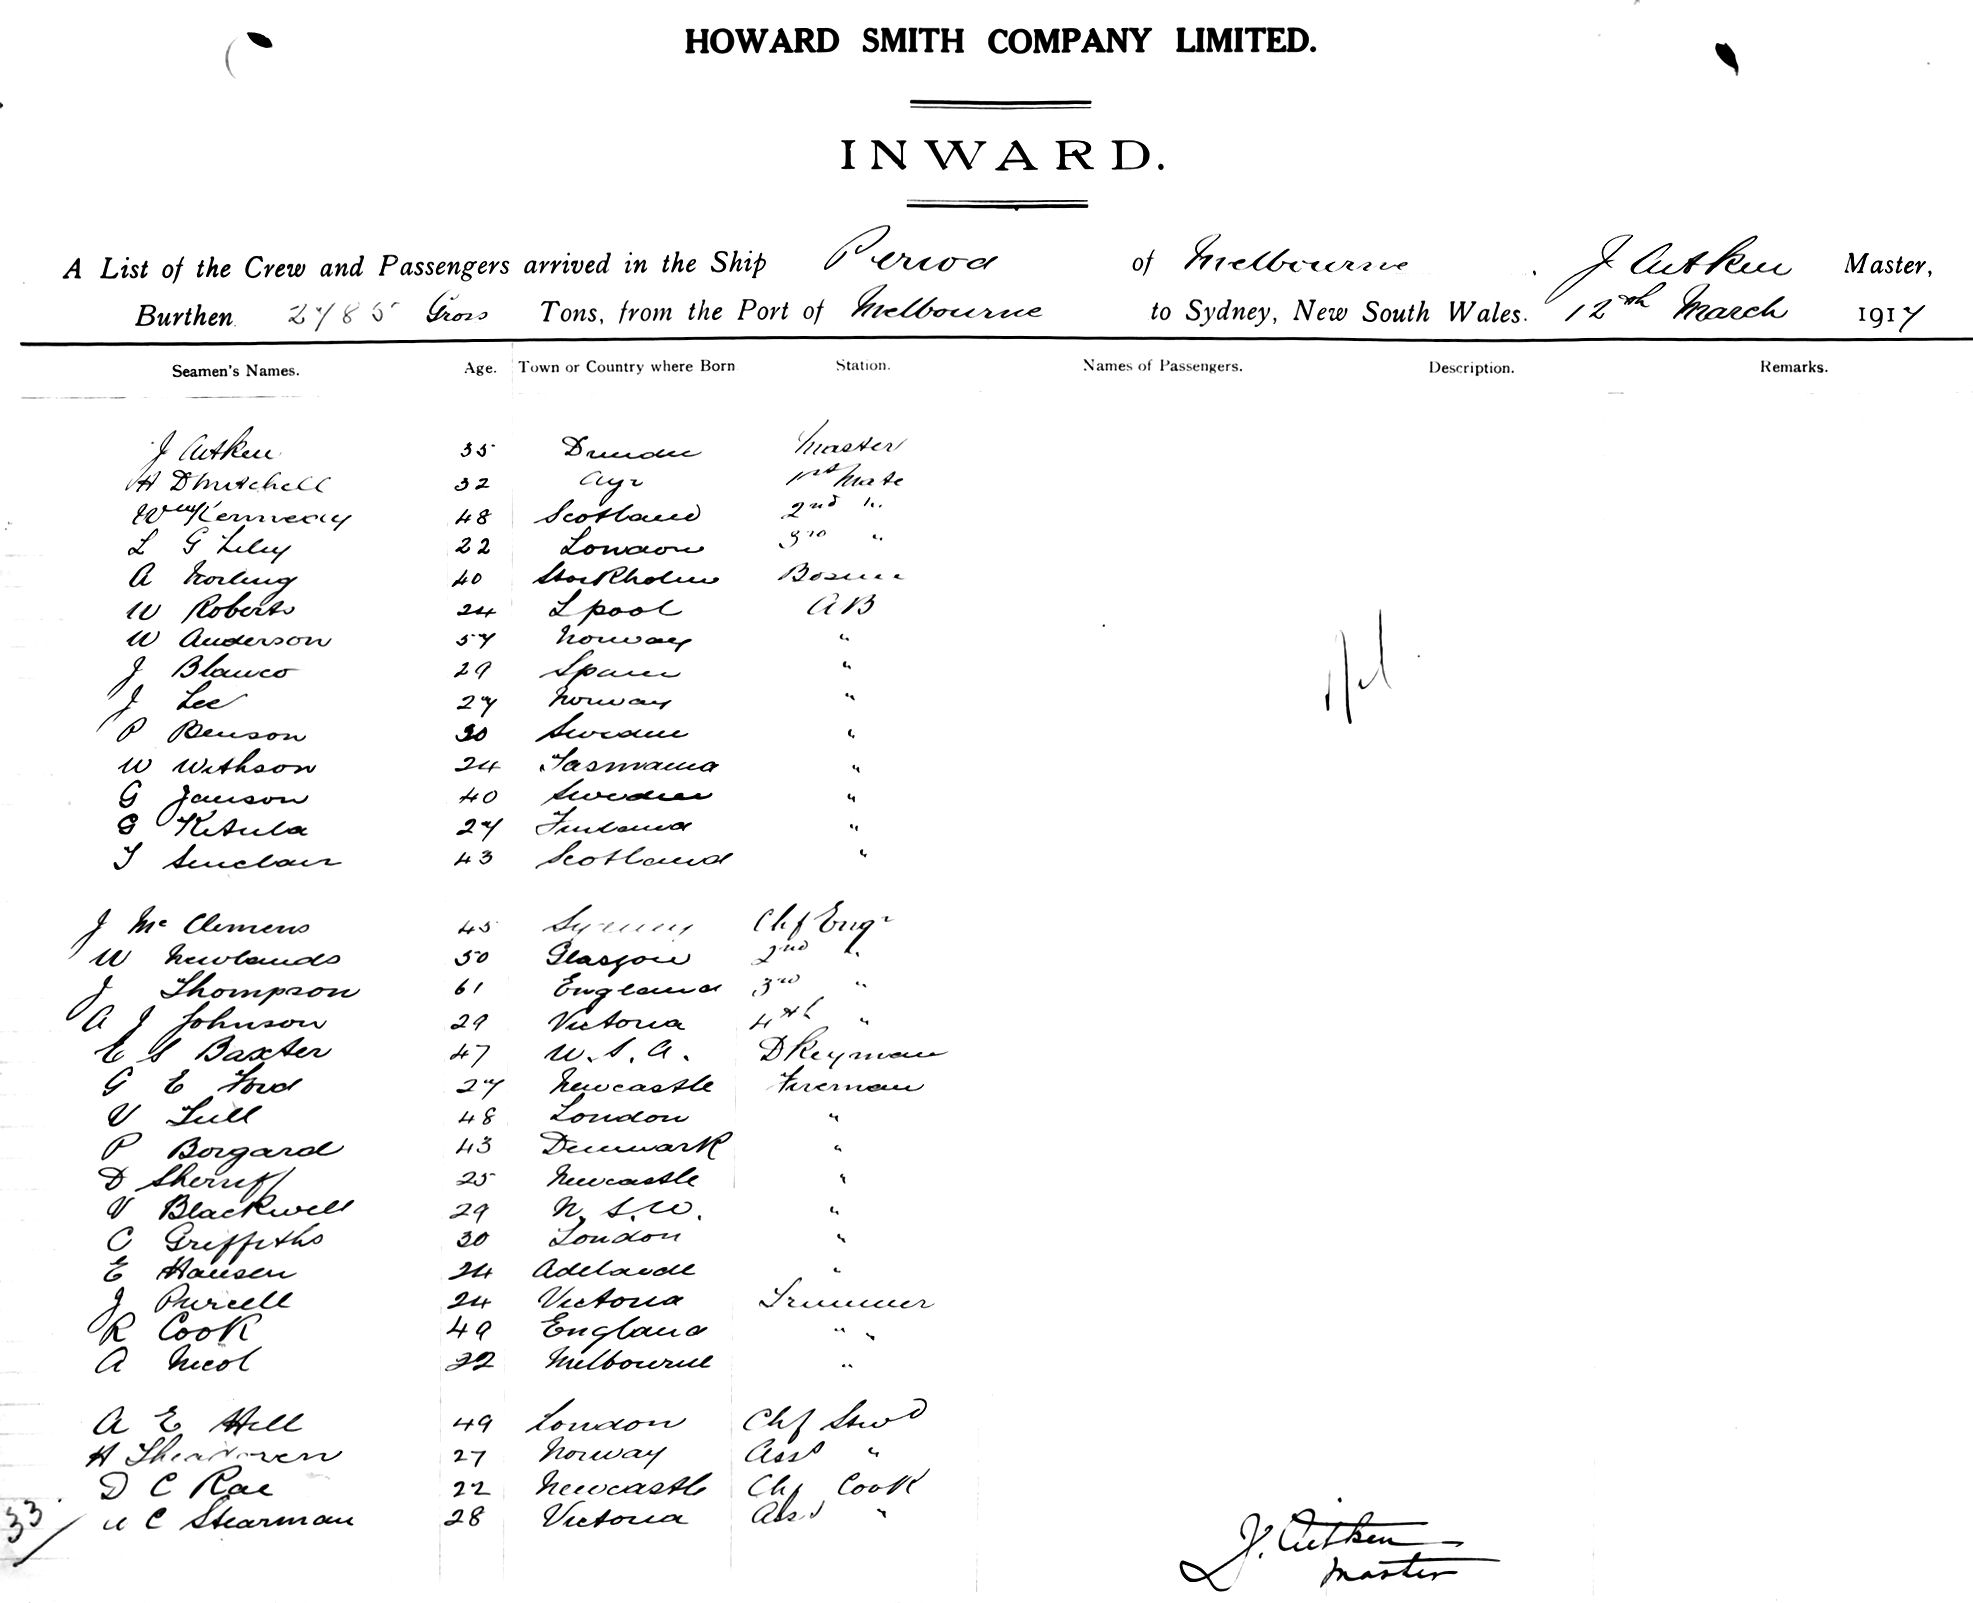 HOWARD SMITH COMPANY LIMITED.
INWARD.
A List of the Crew and Passengers arrived in the Ship Period of Melbourne. J Aitken Master,
Burthen 2785 Gross Tons, from the Port of Melbourne to Sydney, New South Wales. 12th March 1917
Seamen's Names. Age. Town or Country where Born Station. Names of Passengers. Description. Remarks.
J Aitken 35 Dundee Master
H D Mitchell 32 Ayr 1st Mate
Wm Kennedy 48 Scotland 2nd "
L G Lilly 22 London 3rd "
A Norling 40 Stockholm Bosun
W Roberts 24 L pool AB
W Anderson 57 Norway "
J Blanco 29 Spain "
J Lee 27 Norway "
P Benson 30 Sweden "
W Withson 24 Tasmania "
G Janson 40 Sweden "
G Ketula 27 Finland "
T Sinclair 43 Scotland "
J Mc Clemens 45 Sydney Chf Engr
W Newlands 50 Glasgow 2nd "
J Thompson 61 England 3rd "
A J Johnson 29 Victoria 4th "
E S Baxter 47 U.S.A. Dkeyman
G E Ford 27 Newcastle Fireman
V Tull 48 London "
P Borgard 43 Denmark "
D Sherriff 25 Newcastle "
V Blackwell 29 N.S.W. "
C Griffiths 30 London "
E Hansen 24 Adelaide "
J Purcell 24 Victoria Trimmer
R Cook 49 England " "
A Nicol 22 Melbourne "
A E Hill 49 London Chf Stwd
H 27 Norway Asst "
D C Rae 22 Newcastle Chf Cook
W C Stearman 28 Victoria Asst "
33
Nil
J. Aitken
Master